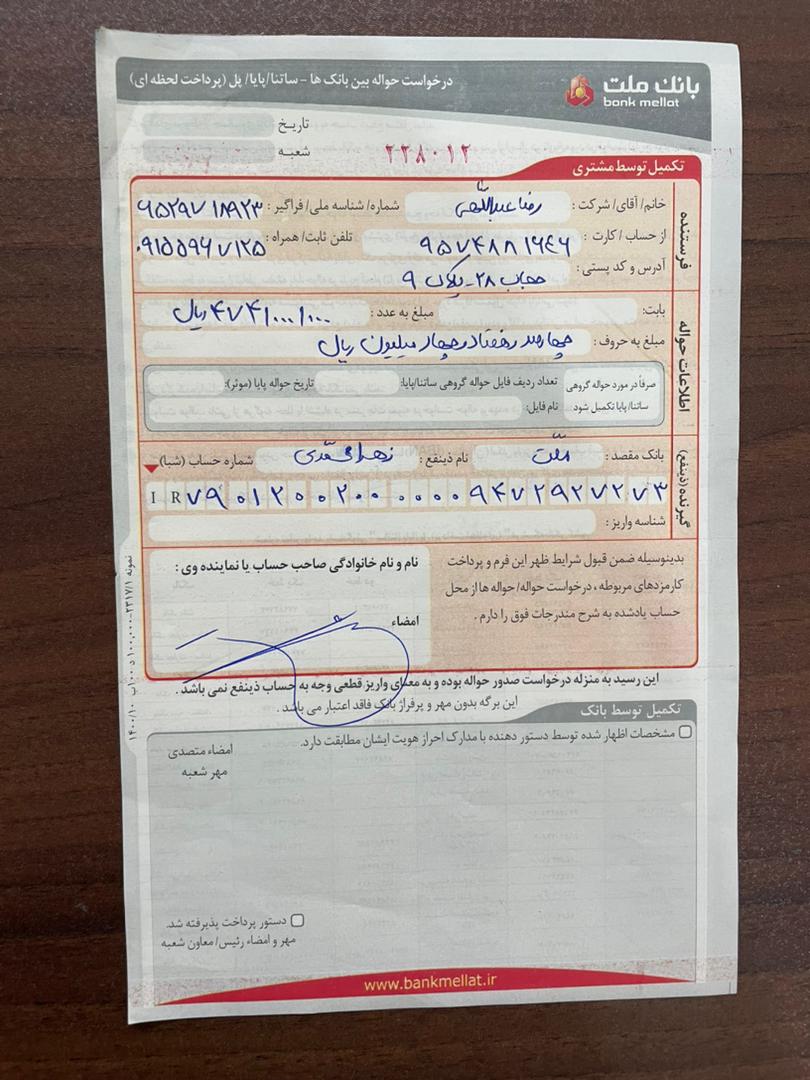 بانک ملت
bank mellat
درخواست حواله بین بانک ها - ساتنا/پایا/ پل (پرداخت لحظه ای)
تاریخ
شعبه ۲۲۸۰۱۲
تکمیل توسط مشتری
فرستنده
خانم/ آقای/ شرکت: رضا عبداللهی شماره/ شناسه ملی/ فراگیر: ۶۵۲۹۷۱۸۹۲۳
از حساب/ کارت: ۹۵۷۴۸۸۱۶۴۶ تلفن ثابت/ همراه: ۰۹۱۵۵۹۶۷۱۲۵
آدرس و کد پستی: حجاب ۲۸ - پلاک ۹
اطلاعات حواله
بابت: مبلغ به عدد: ۴۷۴/۰۰۰/۰۰۰ ریال
مبلغ به حروف: چهارصد و هفتاد و چهار میلیون ریال
صرفاً در مورد حواله گروهی ساتنا/ پایا تکمیل شود
تعداد ردیف فایل حواله گروهی ساتنا/پایا: تاریخ حواله پایا (موثر):
نام فایل:
گیرنده (ذینفع)
بانک مقصد: ملّت نام ذینفع: زهرا محمّدی شماره حساب (شبا)
IR ۷۹۰۱۲۰۰۲۰۰۰۰۰۰۹۴۷۲۹۲۷۲۷۳
شناسه واریز:
بدینوسیله ضمن قبول شرایط ظهر این فرم و پرداخت
کارمزدهای مربوطه، درخواست حواله/ حواله ها از محل
حساب یادشده به شرح مندرجات فوق را دارم.
نام و نام خانوادگی صاحب حساب یا نماینده وی:
امضاء
این رسید به منزله درخواست صدور حواله بوده و به معنای واریز قطعی وجه به حساب ذینفع نمی باشد.
این برگه بدون مهر و پرفراژ بانک فاقد اعتبار می باشد.
تکمیل توسط بانک
مشخصات اظهار شده توسط دستور دهنده با مدارک احراز هویت ایشان مطابقت دارد.
امضاء متصدی
مهر شعبه
دستور پرداخت پذیرفته شد.
مهر و امضاء رئیس/ معاون شعبه
www.bankmellat.ir